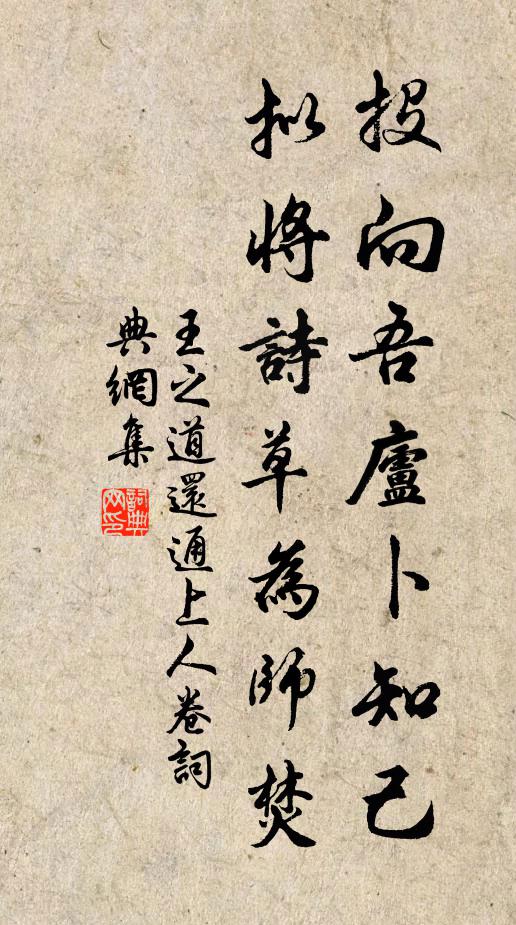 投向吾廬卜知己
擬將詩草為師焚
王之道還通上人卷詞
典網集
詞典網印